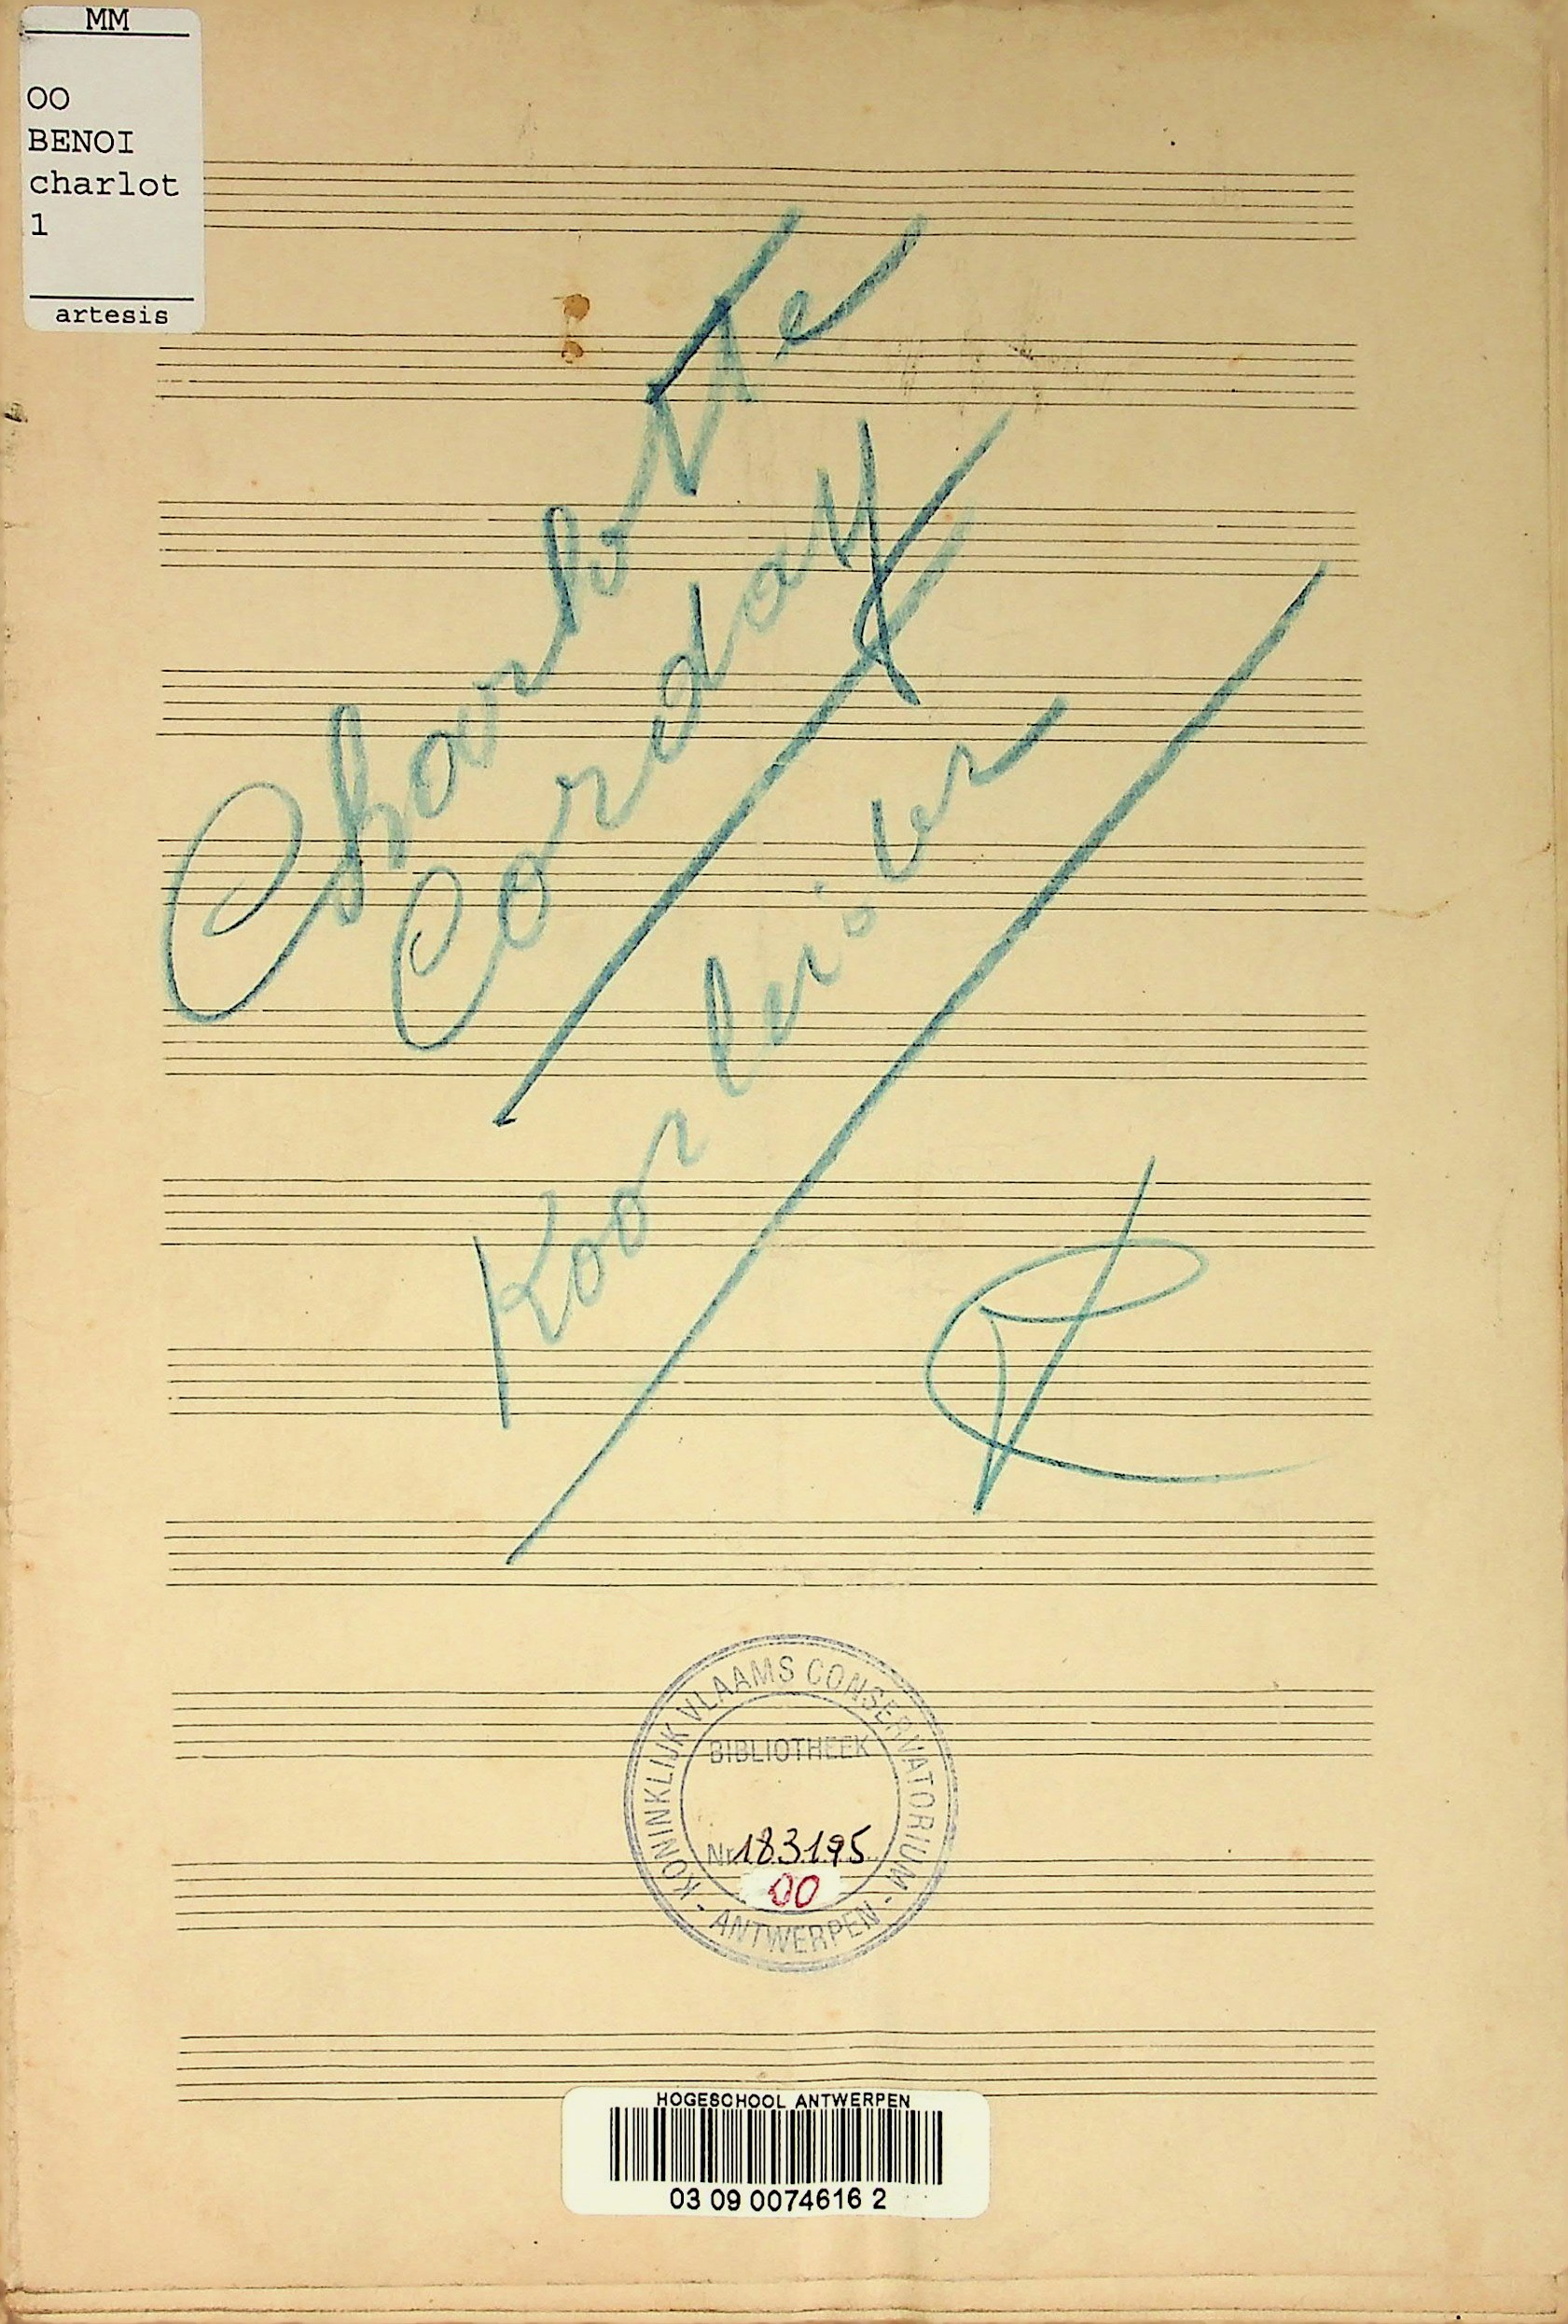 MM
OO
BENOI
charlot
1
artesis
Charlotte
Corday
Koorleider
KONINKLIJK VLAAMS CONSERVATORIUM - ANTWERPEN -
BIBLIOTHEEK
Nr. 183195
OO
HOGESCHOOL ANTWERPEN
03 09 0074616 2